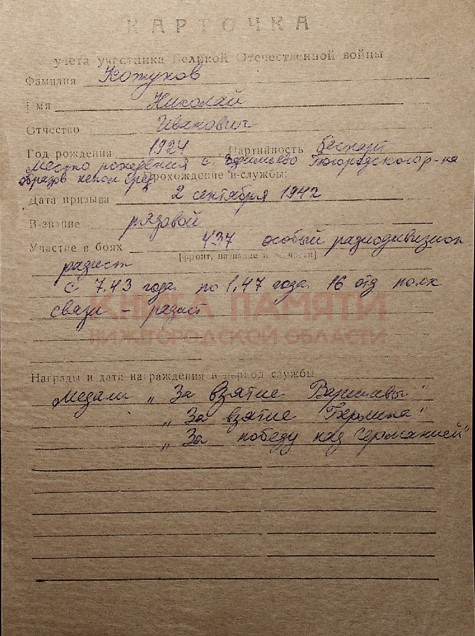 КАРТОЧКА
учета участника Великой Отечественной войны
Фамилия Кожухов
Имя Николай
Отчество Иванович
Год рождения 1924 Партийность беспарт
Место рождения с. Богородского р-на
образов непол сред Прохождение и службы:
Дата призыва 2 сентября 1942
В-звание рядовой
Участие в боях 437 особый радиодивизион
[фронт, название и № части]
радист
с 7.43 года по 1,47 года 16 отд полк
КНИГА ПАМЯТИ
связи радист
НИЖЕГОРОДСКОЙ ОБЛАСТИ
Награды и дата награждения в период службы
Медали „За взятие Варшавы"
„За взятие Берлина"
„За победу над Германией"